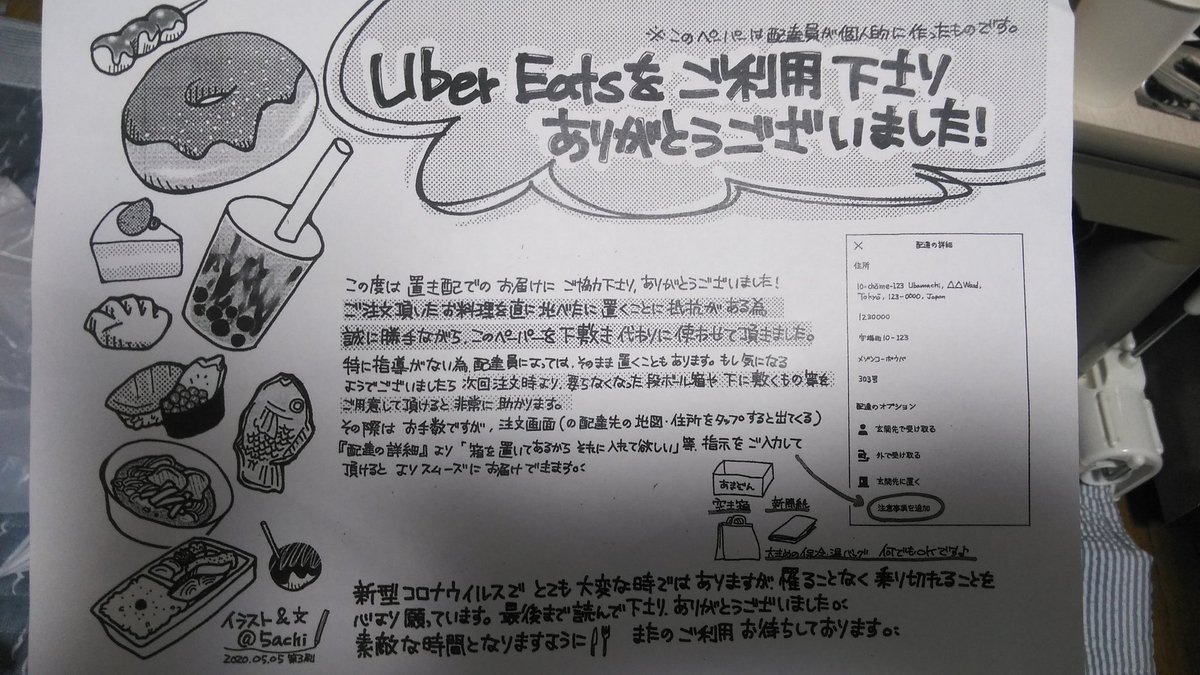 ※このペーパーは配達員が個人的に作ったものです。
Uber Eatsをご利用下さり
ありがとうございました!
この度は置き配でのお届けにご協力下さり、ありがとうございました!
ご注文頂いたお料理を直に地べたに置くことに抵抗がある為
誠に勝手ながら、このペーパーを下敷き代わりに使わせて頂きました。
特に指導がない為、配達員によっては、そのまま置くこともあります。もし気になる
ようでございましたら次回注文時より、要らなくなった段ボール箱や下に敷くもの等を
ご用意して頂けると非常に助かります。
その際はお手数ですが、注文画面(の配達先の地図・住所をタップすると出てくる)
『配達の詳細』より「箱を置いてあるからそれに入れて欲しい」等、指示をご入力して
頂けるとよりスムーズにお届けできます。
配達の詳細
住所
10-chōme-123 Ubamachi, △△Ward,
Tokyō, 123-0000, Japan
1230000
宇場町10-123
メゾンコーポウバ
303号
配達のオプション
玄関先で受け取る
外で受け取る
玄関先に置く
注意事項を追加
あまどん
空き箱 新聞紙
大きめの保冷・温バッグ 何でもOKです♪
新型コロナウイルスでとても大変な時ではありますが罹ることなく乗り切れることを
心より願っています。最後まで読んで下さり、ありがとうございました。
素敵な時間となりますように またのご利用お待ちしております。
イラスト&文
@5achi
2020.05.05 第3刷